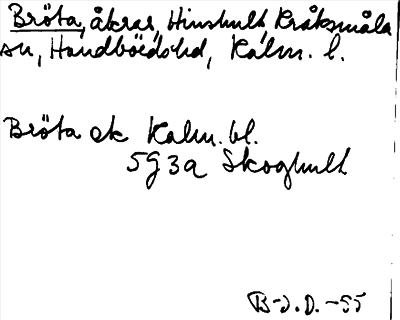 Bröta, åkrar, Hinshult, Kråksmåla
sn, Handbörds hd, Kalm. l.
Bröta ek Kalm. bl.
5G 3a Skoghult
B-J. D. -55